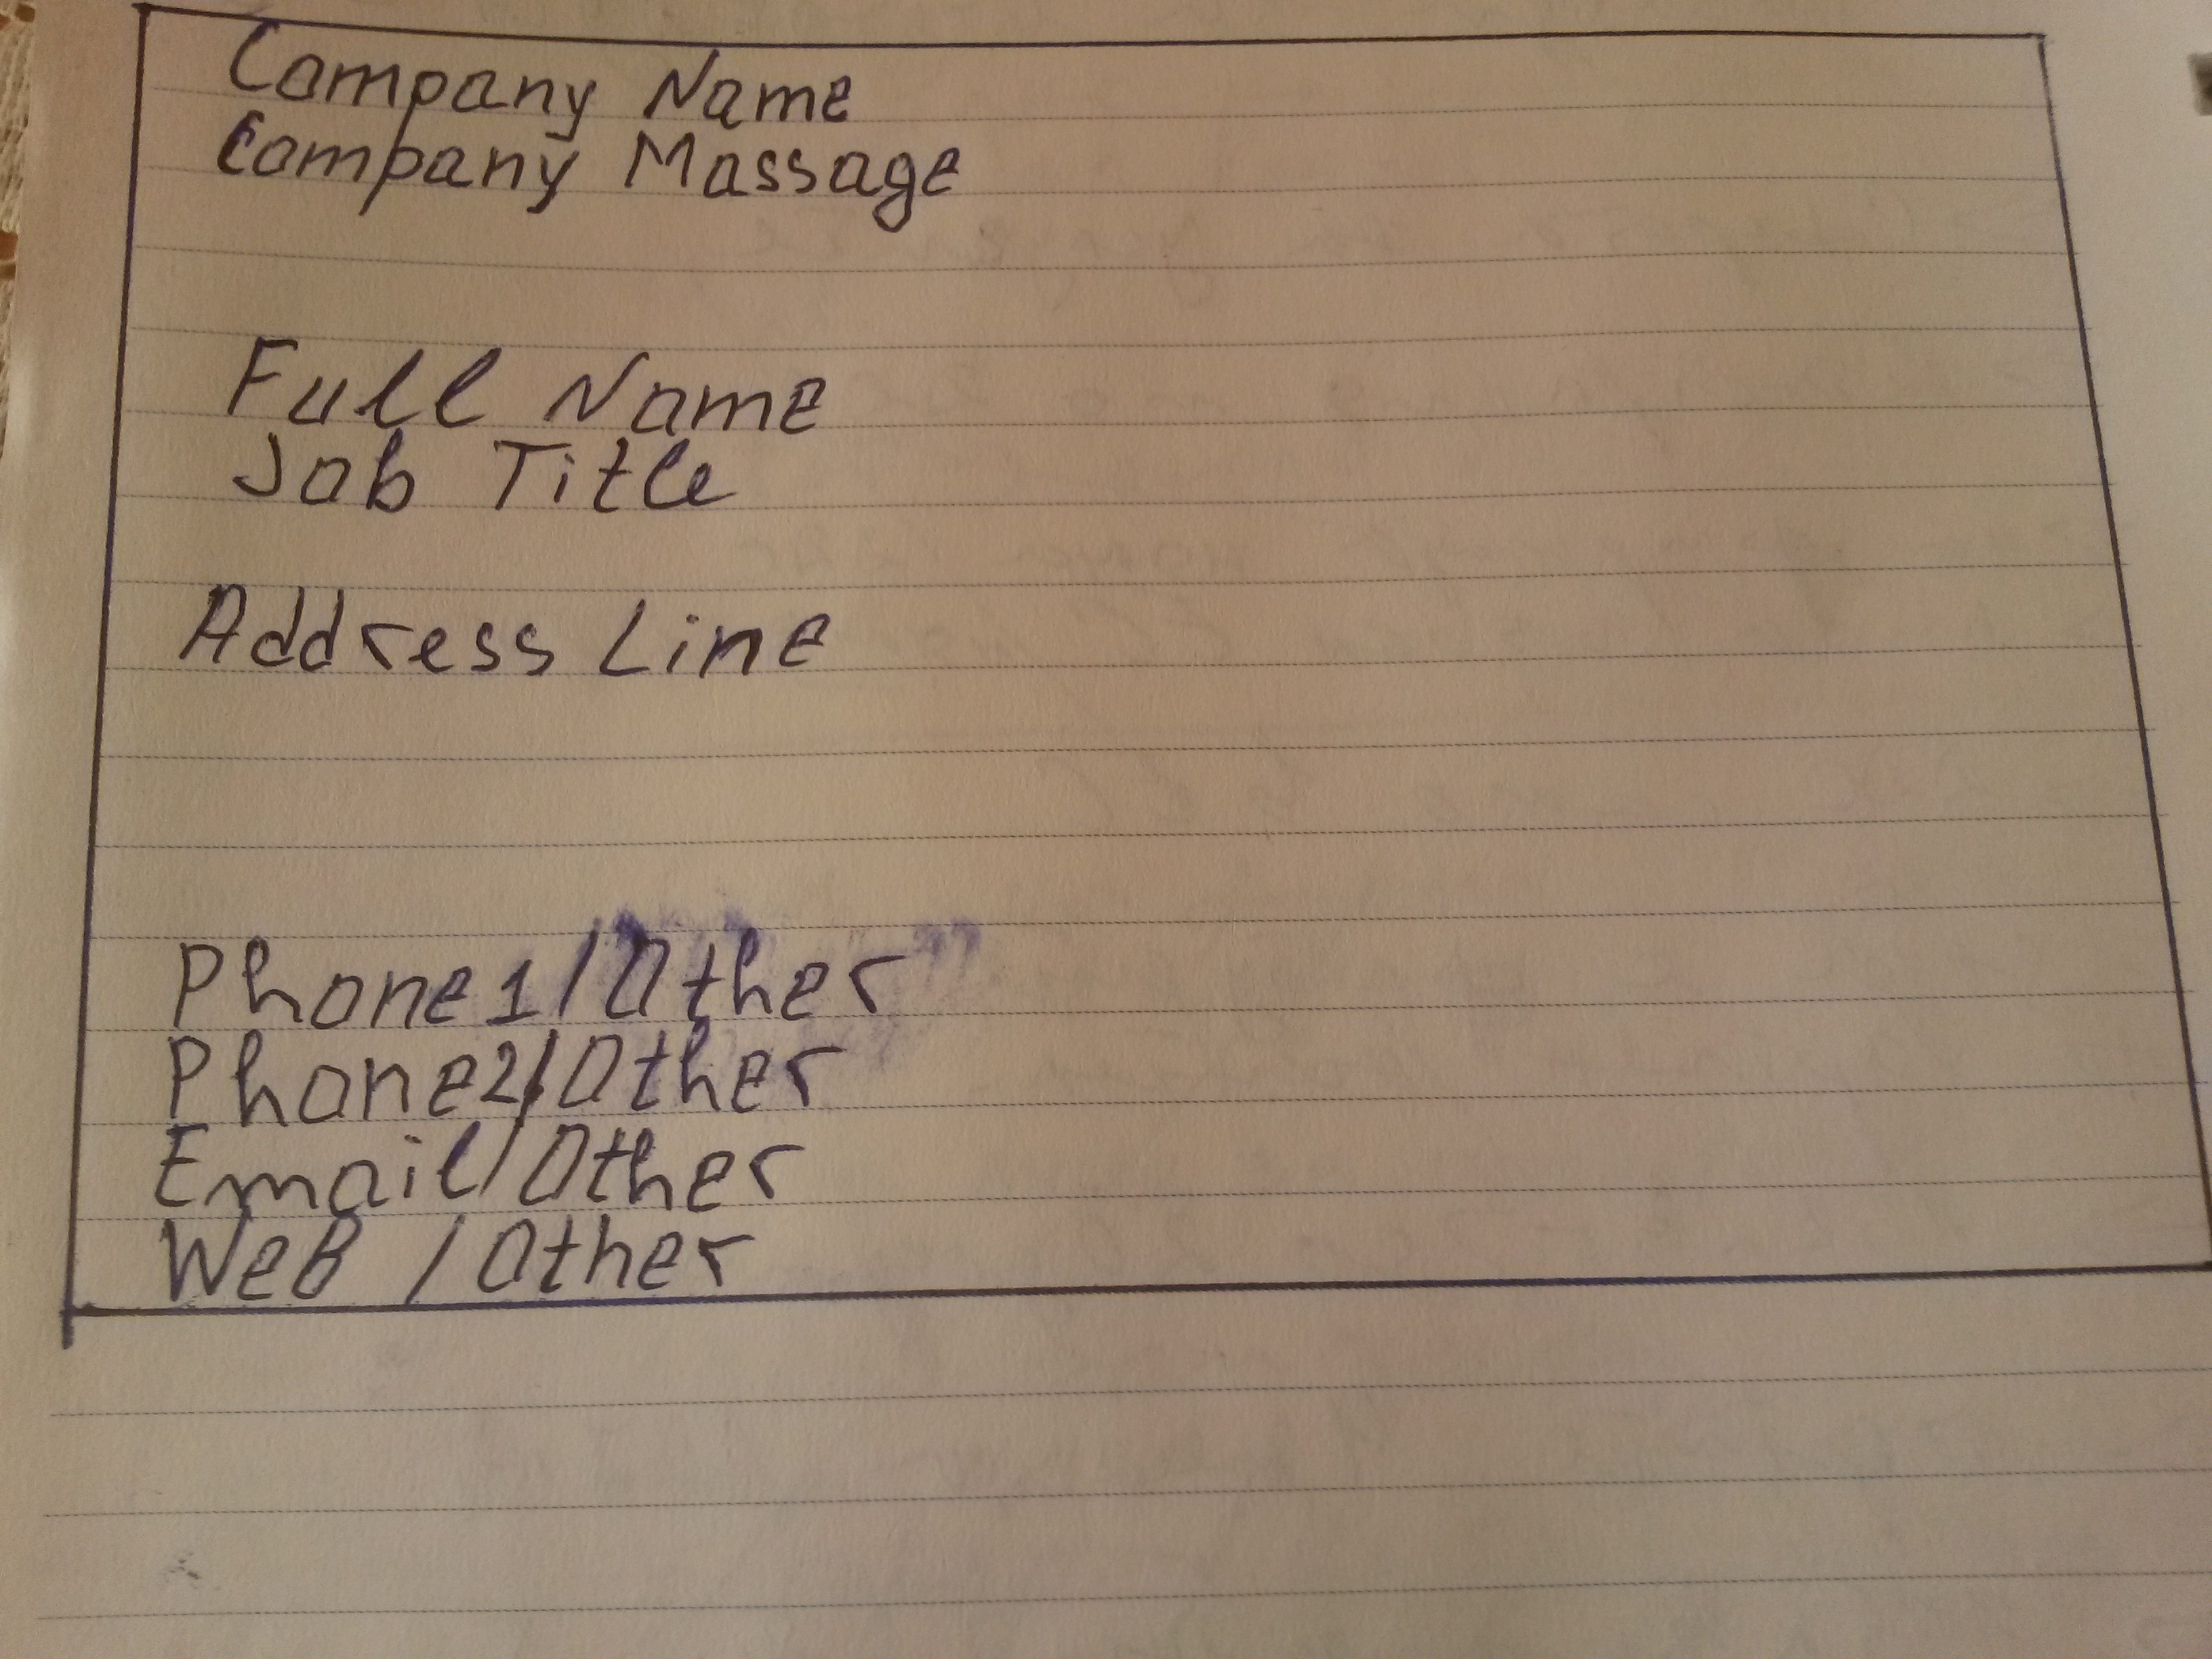 Company Name
Company Massage
Full Name
Job Title
Address Line
Phone1/"Other"
Phone2/Other
Email/Other
Web /Other